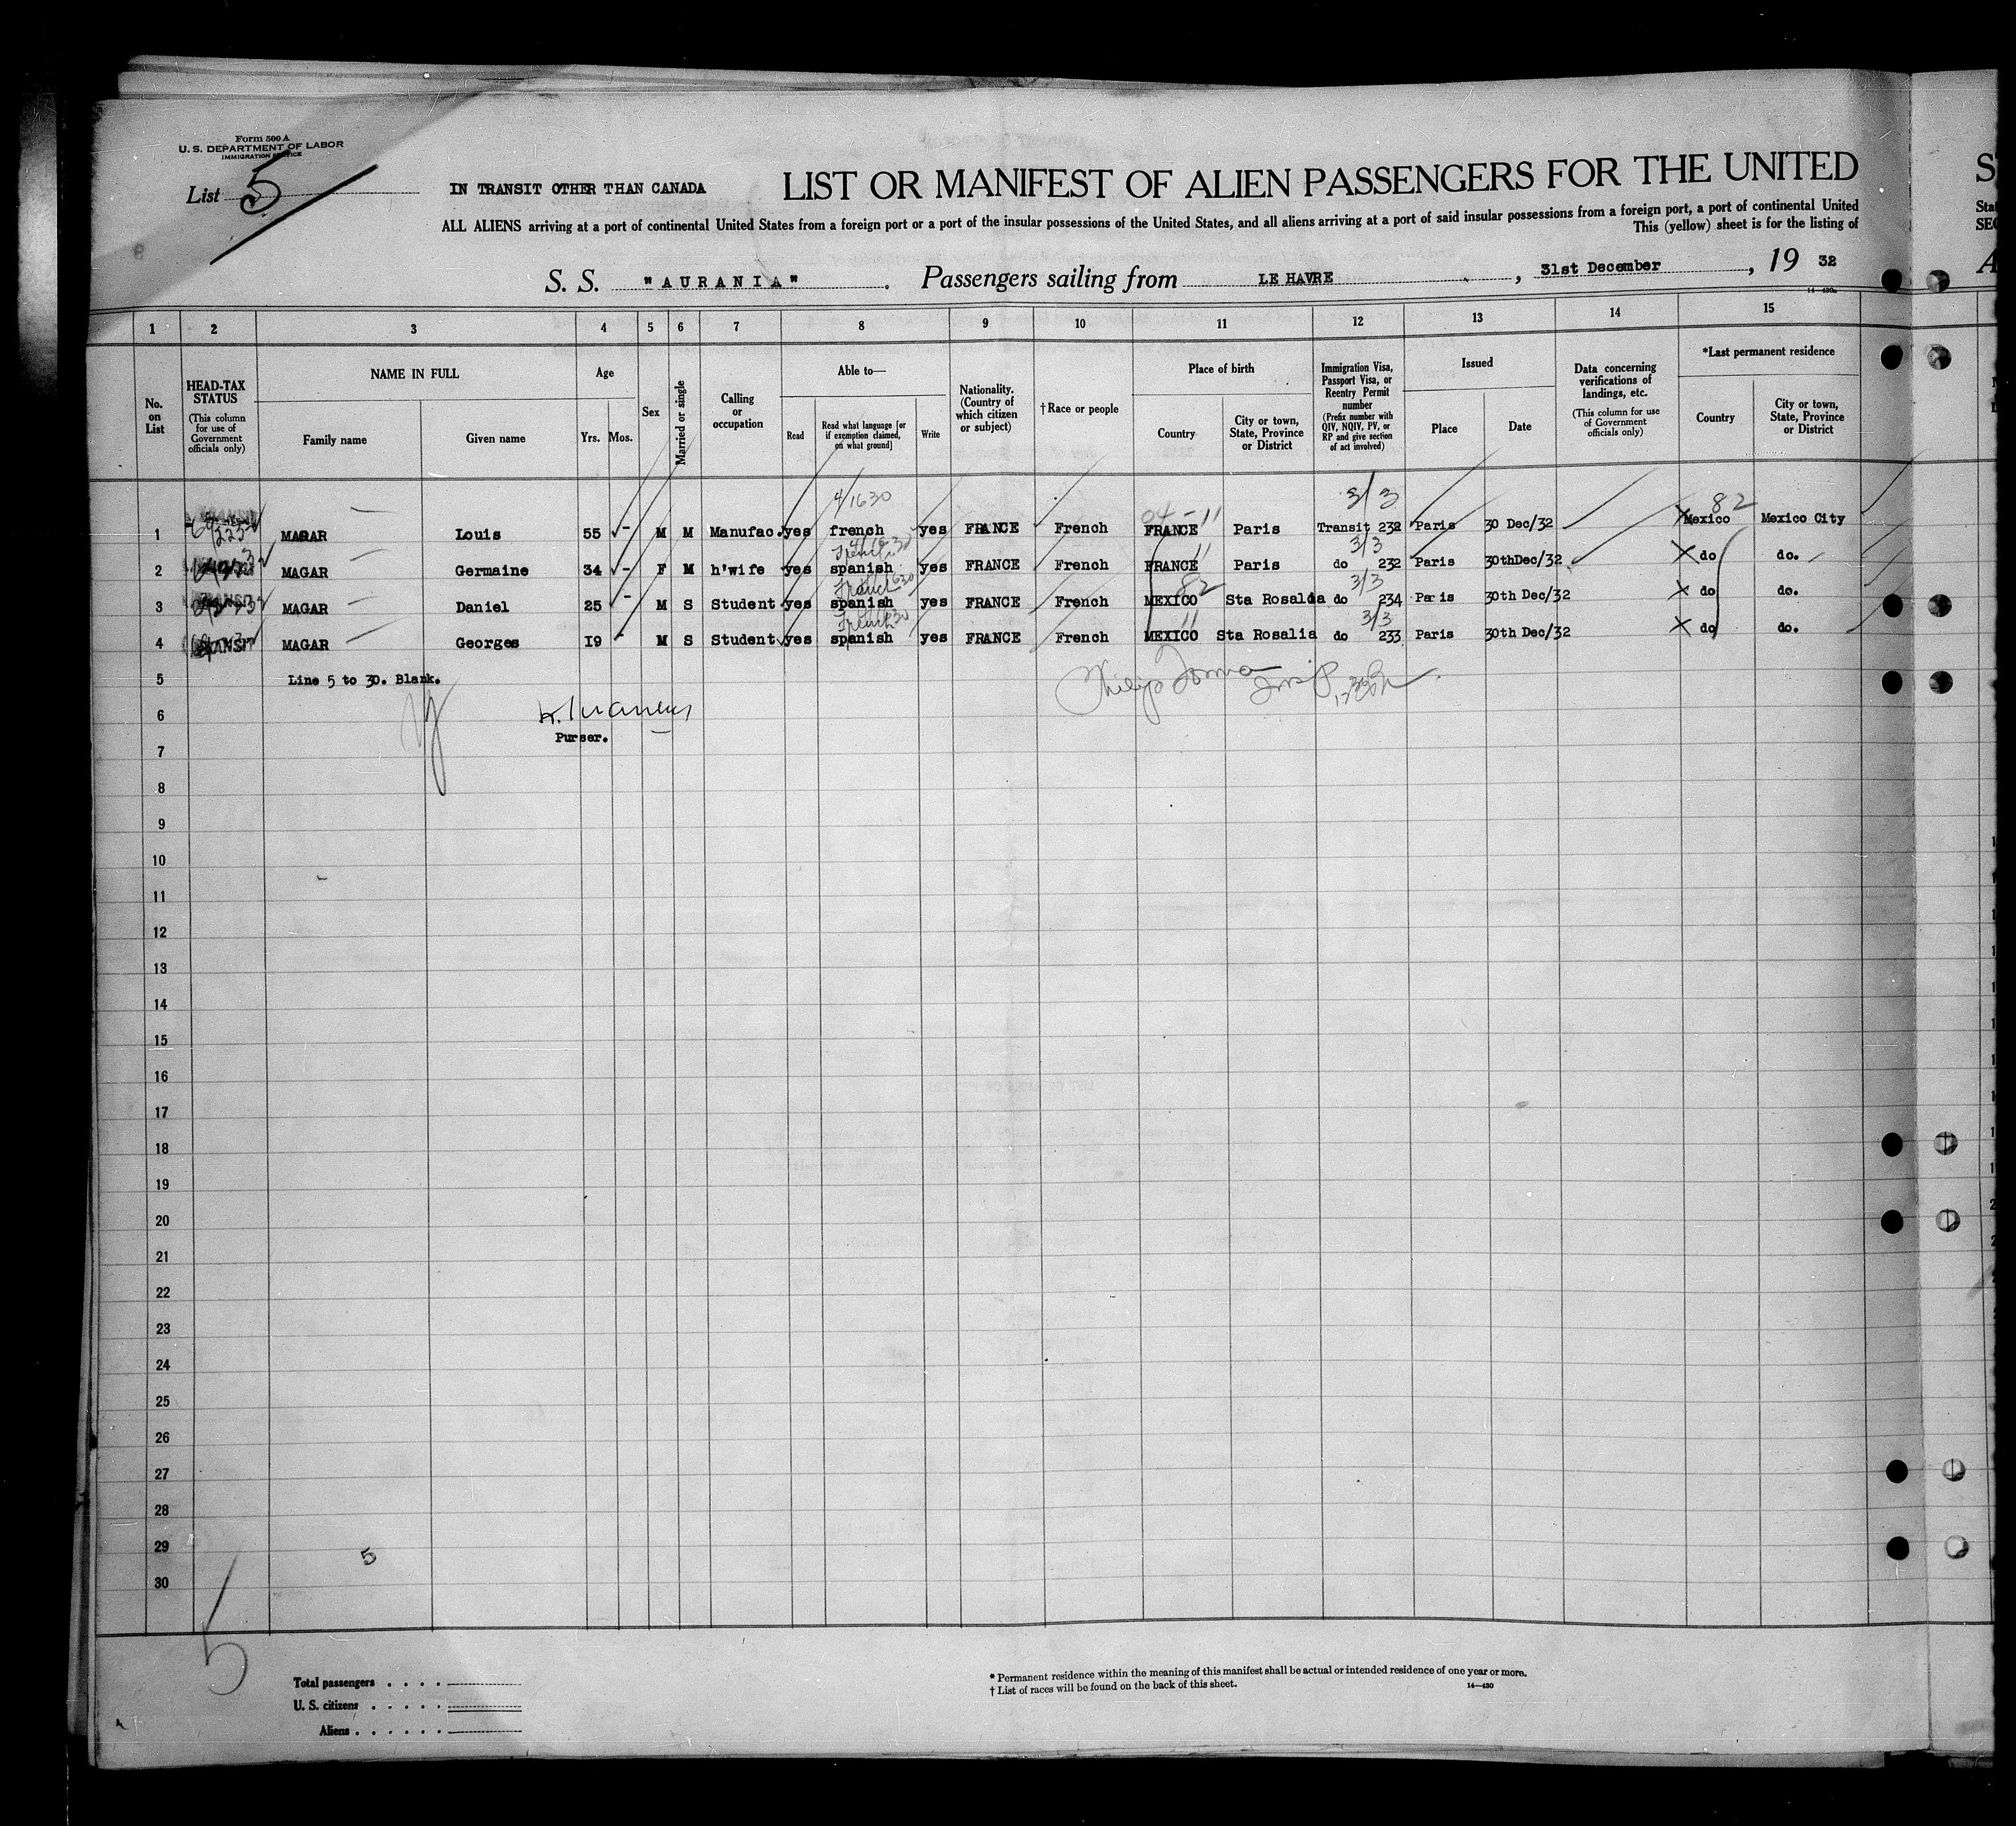 Form 500 A
U. S. DEPARTMENT OF LABOR
IMMIGRATION SERVICE
List 5
IN TRANSIT OTHER THAN CANADA
LIST OR MANIFEST OF ALIEN PASSENGERS FOR THE UNITED
ALL ALIENS arriving at a port of continental United States from a foreign port or a port of the insular possessions of the United States, and all aliens arriving at a port of said insular possessions from a foreign port, a port of continental United
This (yellow) sheet is for the listing of
S. S. "AURANIA". Passengers sailing from LE HAVRE, 31st December, 19 32
14—430
1 2 3 4 5 6 7 8 9 10 11 12 13 14 15
No. on List
HEAD-TAX STATUS (This column for use of Government officials only)
NAME IN FULL
Family name
Given name
Age
Yrs. Mos.
Sex
Married or single
Calling or occupation
Able to—
Read
Read what language [or if exemption claimed, on what ground]
Write
Nationality. (Country of which citizen or subject)
†Race or people
Place of birth
Country
City or town, State, Province or District
Immigration Visa, Passport Visa, or Reentry Permit number (Prefix number with QIV, NQIV, PV, or RP and give section of act involved)
Issued
Place
Date
Data concerning verifications of landings, etc. (This column for use of Government officials only)
*Last permanent residence
Country
City or town, State, Province or District
4/1630 3/3 82
04-11
1 MAGAR Louis 55 - M M Manufac. yes french yes FRANCE French FRANCE Paris Transit 232 Paris 30 Dec/32 Mexico Mexico City
French 11 3/3
2 MAGAR Germaine 34 - F M h'wife yes spanish yes FRANCE French FRANCE Paris do 232 Paris 30thDec/32 do do.
French 630 82 3/3
3 MAGAR Daniel 25 - M S Student yes spanish yes FRANCE French MEXICO Sta Rosalda do 234 Paris 30th Dec/32 do do.
French 30 11 3/3
4 MAGAR Georges 19 - M S Student yes spanish yes FRANCE French MEXICO Sta Rosalia do 233 Paris 30th Dec/32 do do.
5 Line 5 to 30. Blank.
6
Purser.
7
8
9
10
11
12
13
14
15
16
17
18
19
20
21
22
23
24
25
26
27
28
29 5
30
5
Total passengers
U. S. citizens
Aliens
* Permanent residence within the meaning of this manifest shall be actual or intended residence of one year or more.
† List of races will be found on the back of this sheet.
14—430